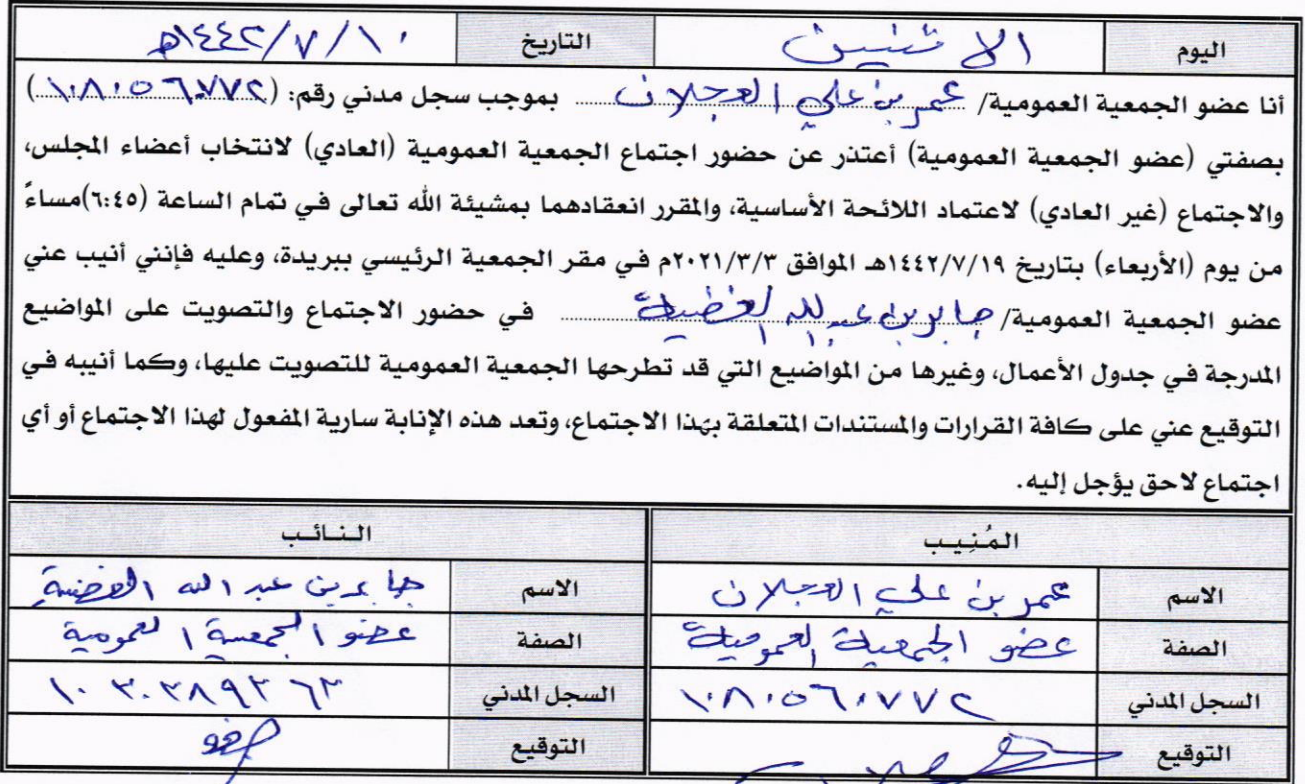 اليوم الاثنين التاريخ ١٤٤٢/٧/١٠هـ
أنا عضو الجمعية العمومية/ عمر بن علي العجلان بموجب سجل مدني رقم: (١٠٨٠٥٦٠٧٧٢)
بصفتي (عضو الجمعية العمومية) أعتذر عن حضور اجتماع الجمعية العمومية (العادي) لانتخاب أعضاء المجلس،
والاجتماع (غير العادي) لاعتماد اللائحة الأساسية، والمقرر انعقادهما بمشيئة الله تعالى في تمام الساعة (٦:٤٥)مساءً
من يوم (الأربعاء) بتاريخ ١٤٤٢/٧/١٩هـ الموافق ٢٠٢١/٣/٣م في مقر الجمعية الرئيسي ببريدة، وعليه فإنني أنيب عني
عضو الجمعية العمومية/ جابر بن عبدالله في حضور الاجتماع والتصويت على المواضيع
المدرجة في جدول الأعمال، وغيرها من المواضيع التي قد تطرحها الجمعية العمومية للتصويت عليها، وكما أنيبه في
التوقيع عني على كافة القرارات والمستندات المتعلقة بهذا الاجتماع، وتعد هذه الإنابة سارية المفعول لهذا الاجتماع أو أي
اجتماع لاحق يؤجل إليه.
المُنِيب النائب
الاسم عمر بن علي العجلان الاسم جابر بن عبد الله
الصفة عضو الجمعية العمومية الصفة عضو الجمعية العمومية
السجل المدني ١٠٨٠٥٦٠٧٧٢ السجل المدني ١٠٣٠٢٨٩٢٦٣
التوقيع التوقيع